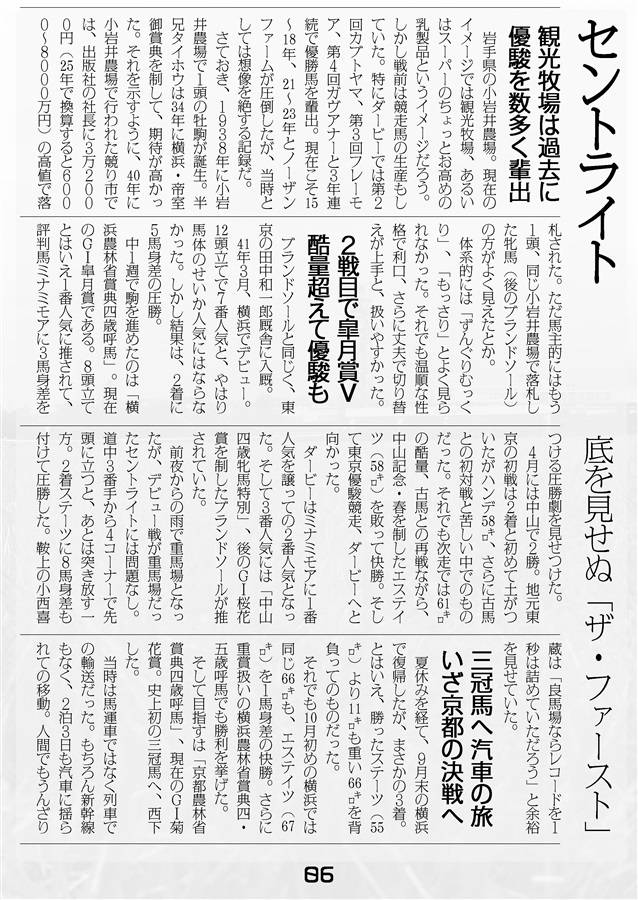 セントライト
底を見せぬ「ザ・ファースト」
観光牧場は過去に
優駿を数多く輩出
岩手県の小岩井農場。現在の
イメージでは観光牧場、あるい
はスーパーのちょっとお高めの
乳製品というイメージだろう。
しかし戦前は競走馬の生産もし
ていた。特にダービーでは第2
回カブトヤマ、第3回フレーモ
ア、第4回ガヴアナーと3年連
続で優勝馬を輩出。現在こそ15
〜18年、21〜23年とノーザン
ファームが圧倒したが、当時と
しては想像を絶する記録だ。
さておき、1938年に小岩
井農場で1頭の牡駒が誕生。半
兄タイホウは34年に横浜・帝室
御賞典を制して、期待が高かっ
た。それを示すように、40年に
小岩井農場で行われた競り市で
は、出版社の社長に3万200
0円(25年で換算すると600
0〜8000万円)の高値で落
札された。ただ馬主的にはもう
1頭、同じ小岩井農場で落札し
た牝馬(後のブランドソール)
の方がよく見えたとか。
体系的には「ずんぐりむっく
り」、「もっさり」とよく見ら
れなかった。それでも温順な性
格で利口、さらに丈夫で切り替
えが上手と、扱いやすかった。
2戦目で皐月賞V
酷量超えて優駿も
ブランドソールと同じく、東
京の田中和一郎厩舎に入厩。
41年3月、横浜でデビュー。
12頭立てで7番人気と、やはり
馬体のせいか人気にはならな
かった。しかし結果は、2着に
5馬身差の圧勝。
中1週で駒を進めたのは「横
浜農林省賞典四歳呼馬」。現在
のGI皐月賞である。8頭立て
とはいえ1番人気に推されて、
評判馬ミナミモアに3馬身差を
つける圧勝劇を見せつけた。
4月には中山で2勝。地元東
京の初戦は2着と初めて土がつ
いたがハンデ58㌔、さらに古馬
との初対戦と苦しい中でのもの
だった。それでも次走では61㌔
の酷量、古馬との再戦ながら、
中山記念・春を制したエステイ
ツ(58㌔)を敗って快勝。そし
て東京優駿競走、ダービーへと
向かった。
ダービーはミナミモアに1番
人気を譲っての2番人気となっ
た。そして3番人気には「中山
四歳牝馬特別」、後のGI桜花
賞を制したブランドソールが推
されていた。
前夜からの雨で重馬場となっ
たが、デビュー戦が重馬場だっ
たセントライトには問題なし。
道中3番手から4コーナーで先
頭に立つと、あとは突き放す一
方。2着ステーツに8馬身差も
付けて圧勝した。鞍上の小西喜
蔵は「良馬場ならレコードを1
秒は詰めていただろう」と余裕
を見せていた。
三冠馬へ汽車の旅
いざ京都の決戦へ
夏休みを経て、9月末の横浜
で復帰したが、まさかの3着。
とはいえ、勝ったステーツ(55
㌔)より11㌔も重い66㌔を背
負ってのものだった。
それでも10月初めの横浜では
同じ66㌔も、エステイツ(67
㌔)を1馬身差の快勝。さらに
重賞扱いの横浜農林省賞典四・
五歳呼馬でも勝利を挙げた。
そして目指すは「京都農林省
賞典四歳呼馬」、現在のGI菊
花賞。史上初の三冠馬へ、西下
した。
当時は馬運車ではなく列車で
の輸送だった。もちろん新幹線
もなく、2泊3日も汽車に揺ら
れての移動。人間でもうんざり
86